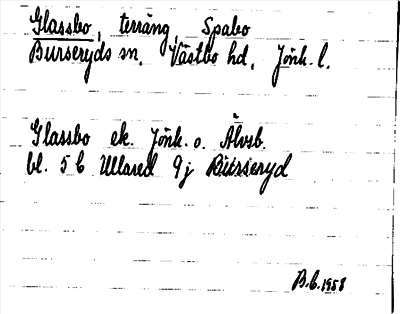 Glassbo, terräng, Spabo
Burseryds sn. Västbo hd. Jönk. l.
Glassbo ek. Jönk. o. Älvsb.
bl. 5 C Ullared 9j Burseryd
B.C. 1958